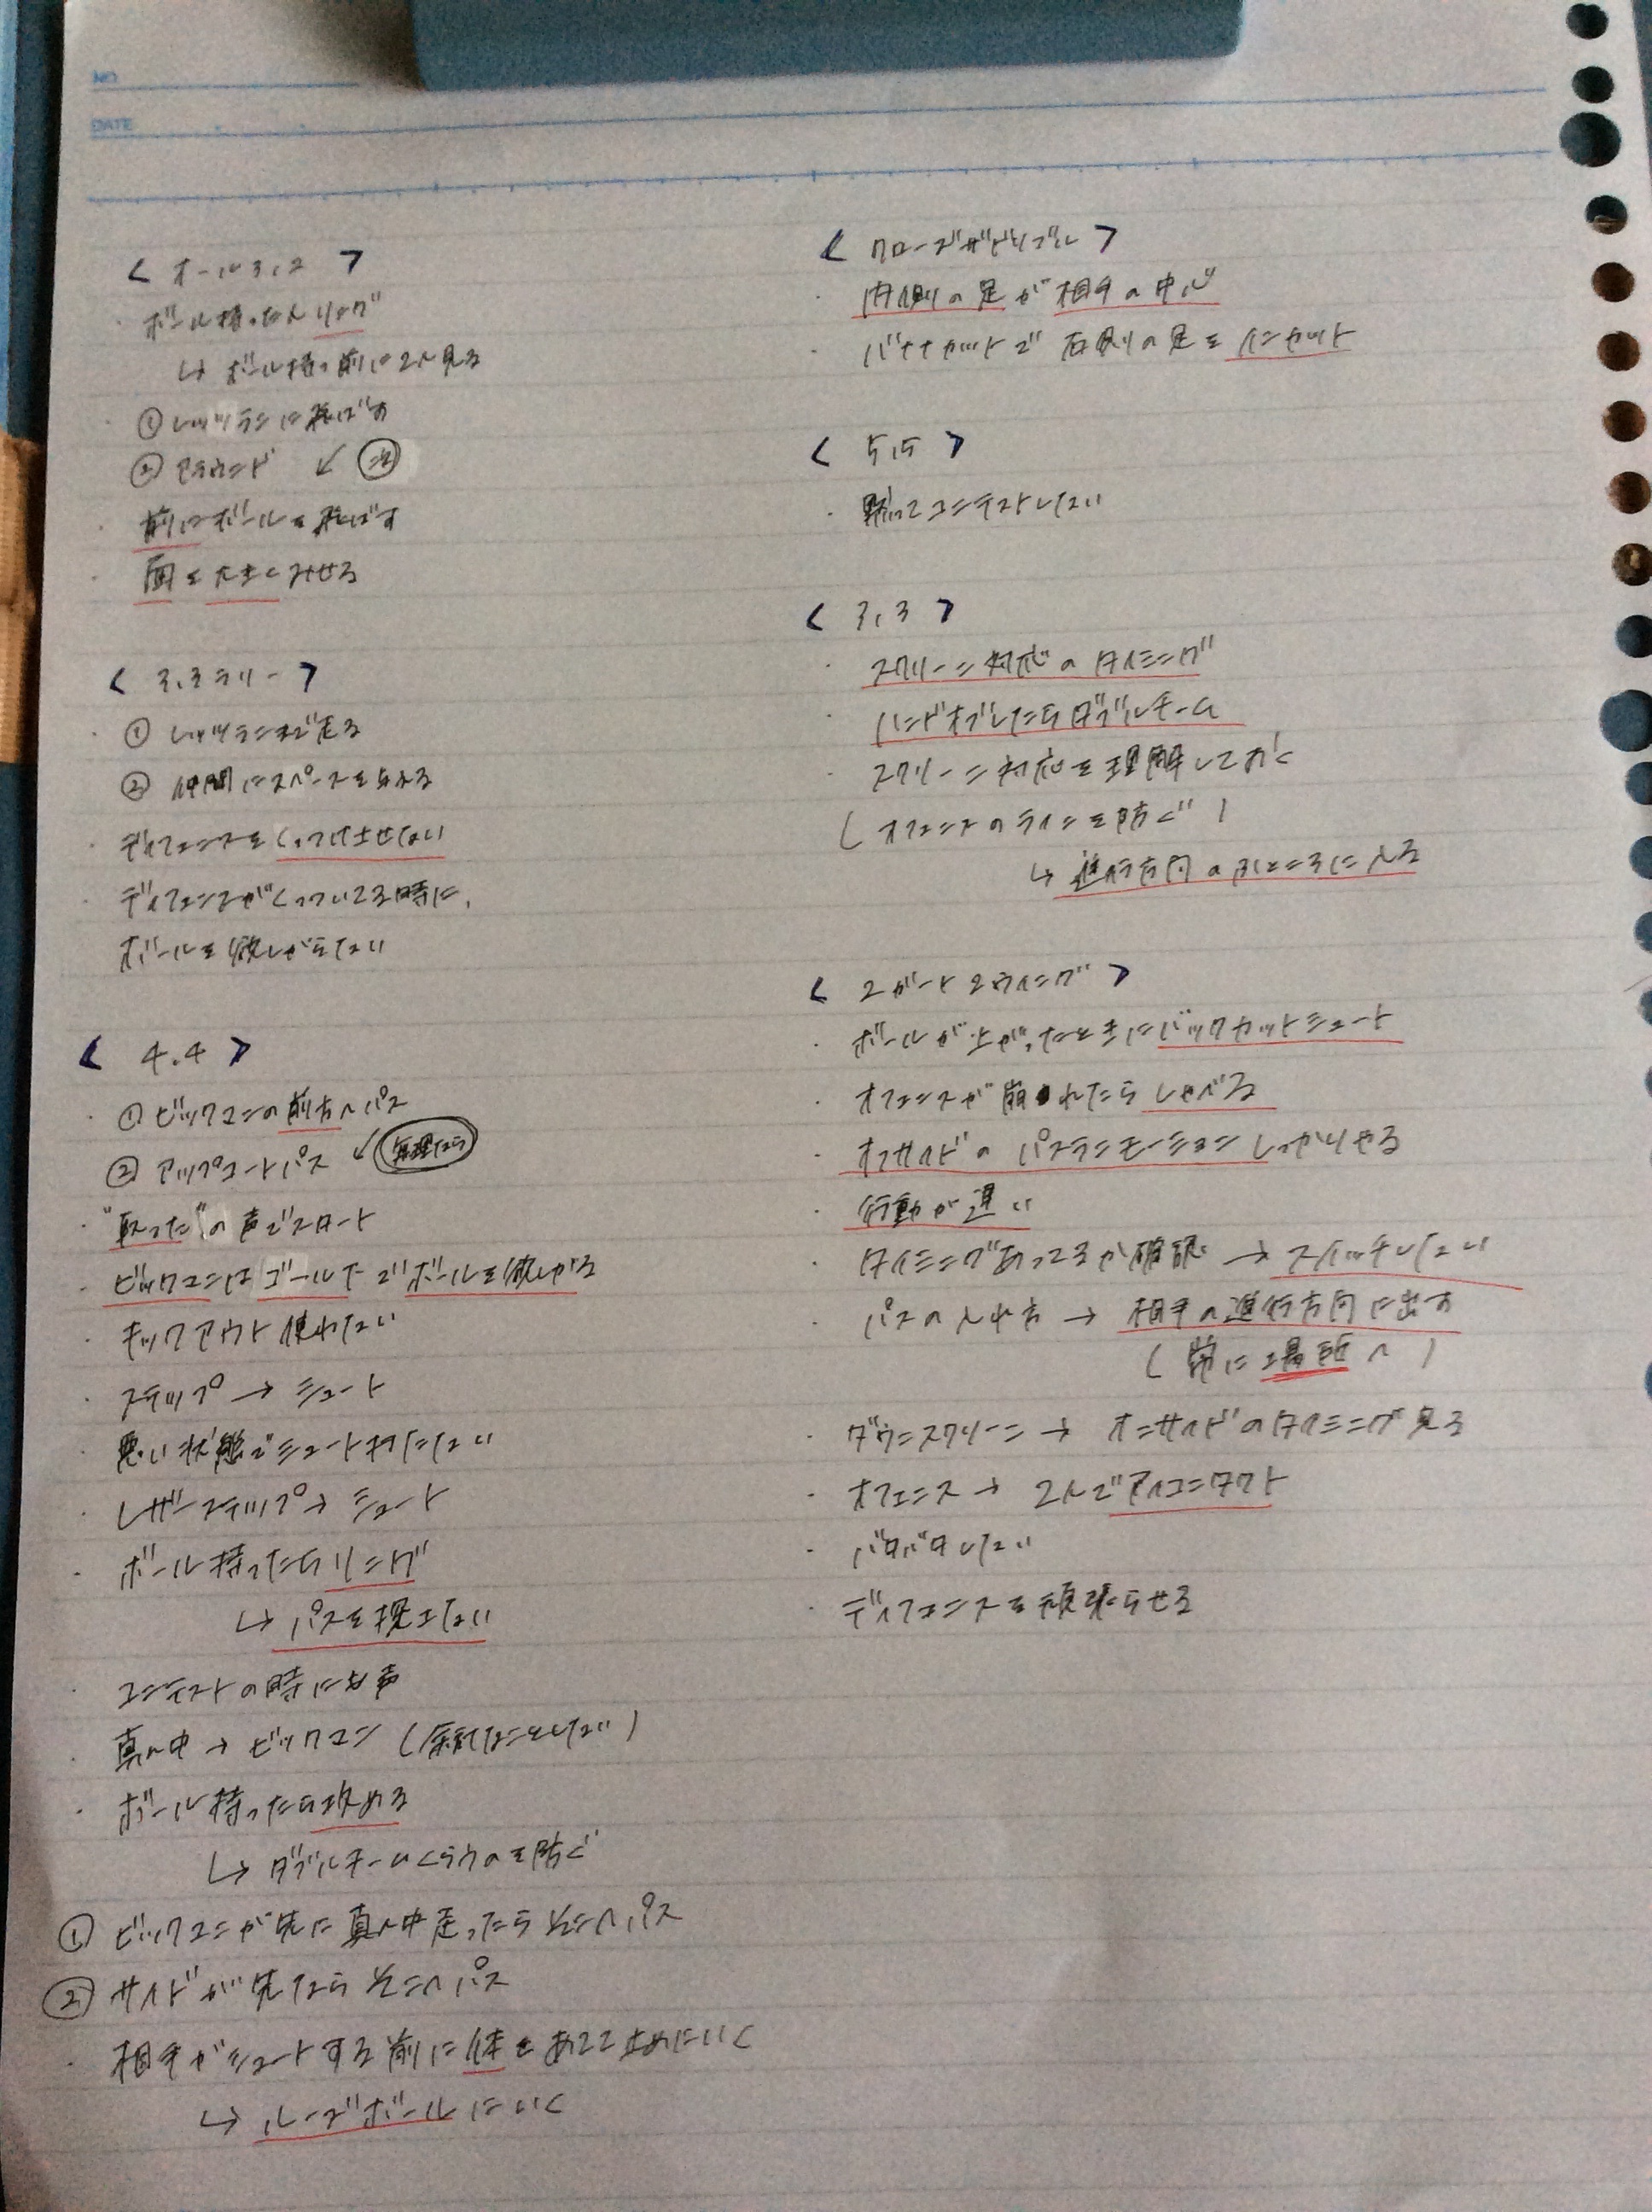 NO.
DATE
< オール3,2 >
・ ボール持ったらリング
↳ ボール持つ前に2人見る
・ ① レッツランに飛ばす
② アラウンド ↙
・ 前にボールを飛ばす
・ 面を大きくみせる
< 3,3ラリー >
・ ① レッツランまで走る
・ ② 仲間にスペースを与える
・ ディフェンスをくっつけさせない
・ ディフェンスがくっついてる時に、
ボールを欲しがらない
< 4.4 >
・ ① ビックマンの前方へパス
② アップコートパス ↙ 無理なら
・ "取った"の声でスタート
・ ビックマンはゴール下でボールを欲しがる
・ キックアウト使わない
・ ステップ → シュート
・ 悪い状態でシュート打たない
・ レザーステップ → シュート
・ ボール持ったらリング
↳ パスを捜さない
・ コンテストの時にも声
・ 真ん中 → ビックマン (余計なことしない)
・ ボール持ったら攻める
↳ ダブルチームくらうのを防ぐ
① ビックマンが先に真ん中走ったらそこへパス
② サイドが先ならそこへパス
・ 相手がシュートする前に体をあてて止めにいく
↳ ルーズボールにいく
< クローズザドリブル >
・ 内側の足が相手の中心
・ バナナカットで右側の足をインカット
< 5,5 >
・ 黙ってコンテストしない
< 3,3 >
・ スクリーン対応のタイミング
・ ハンドオフしたらダブルチーム
・ スクリーン対応を理解しておく
(オフェンスのラインを防ぐ)
↳ 進行方向のふところに入る
< 2ガード2ウイング >
・ ボールが上がったときにバックカットシュート
・ オフェンスが崩れたらしゃべる
・ オフサイドのパスランモーションしっかりやる
・ 行動が遅い
・ タイミングあってるか確認 → スイッチしない
・ パスの入れ方 → 相手の進行方向に出す
(前に場所へ)
・ ダウンスクリーン → オンサイドのタイミング見る
・ オフェンス → 2人でアイコンタクト
・ バタバタしない
・ ディフェンスを頑張らせる